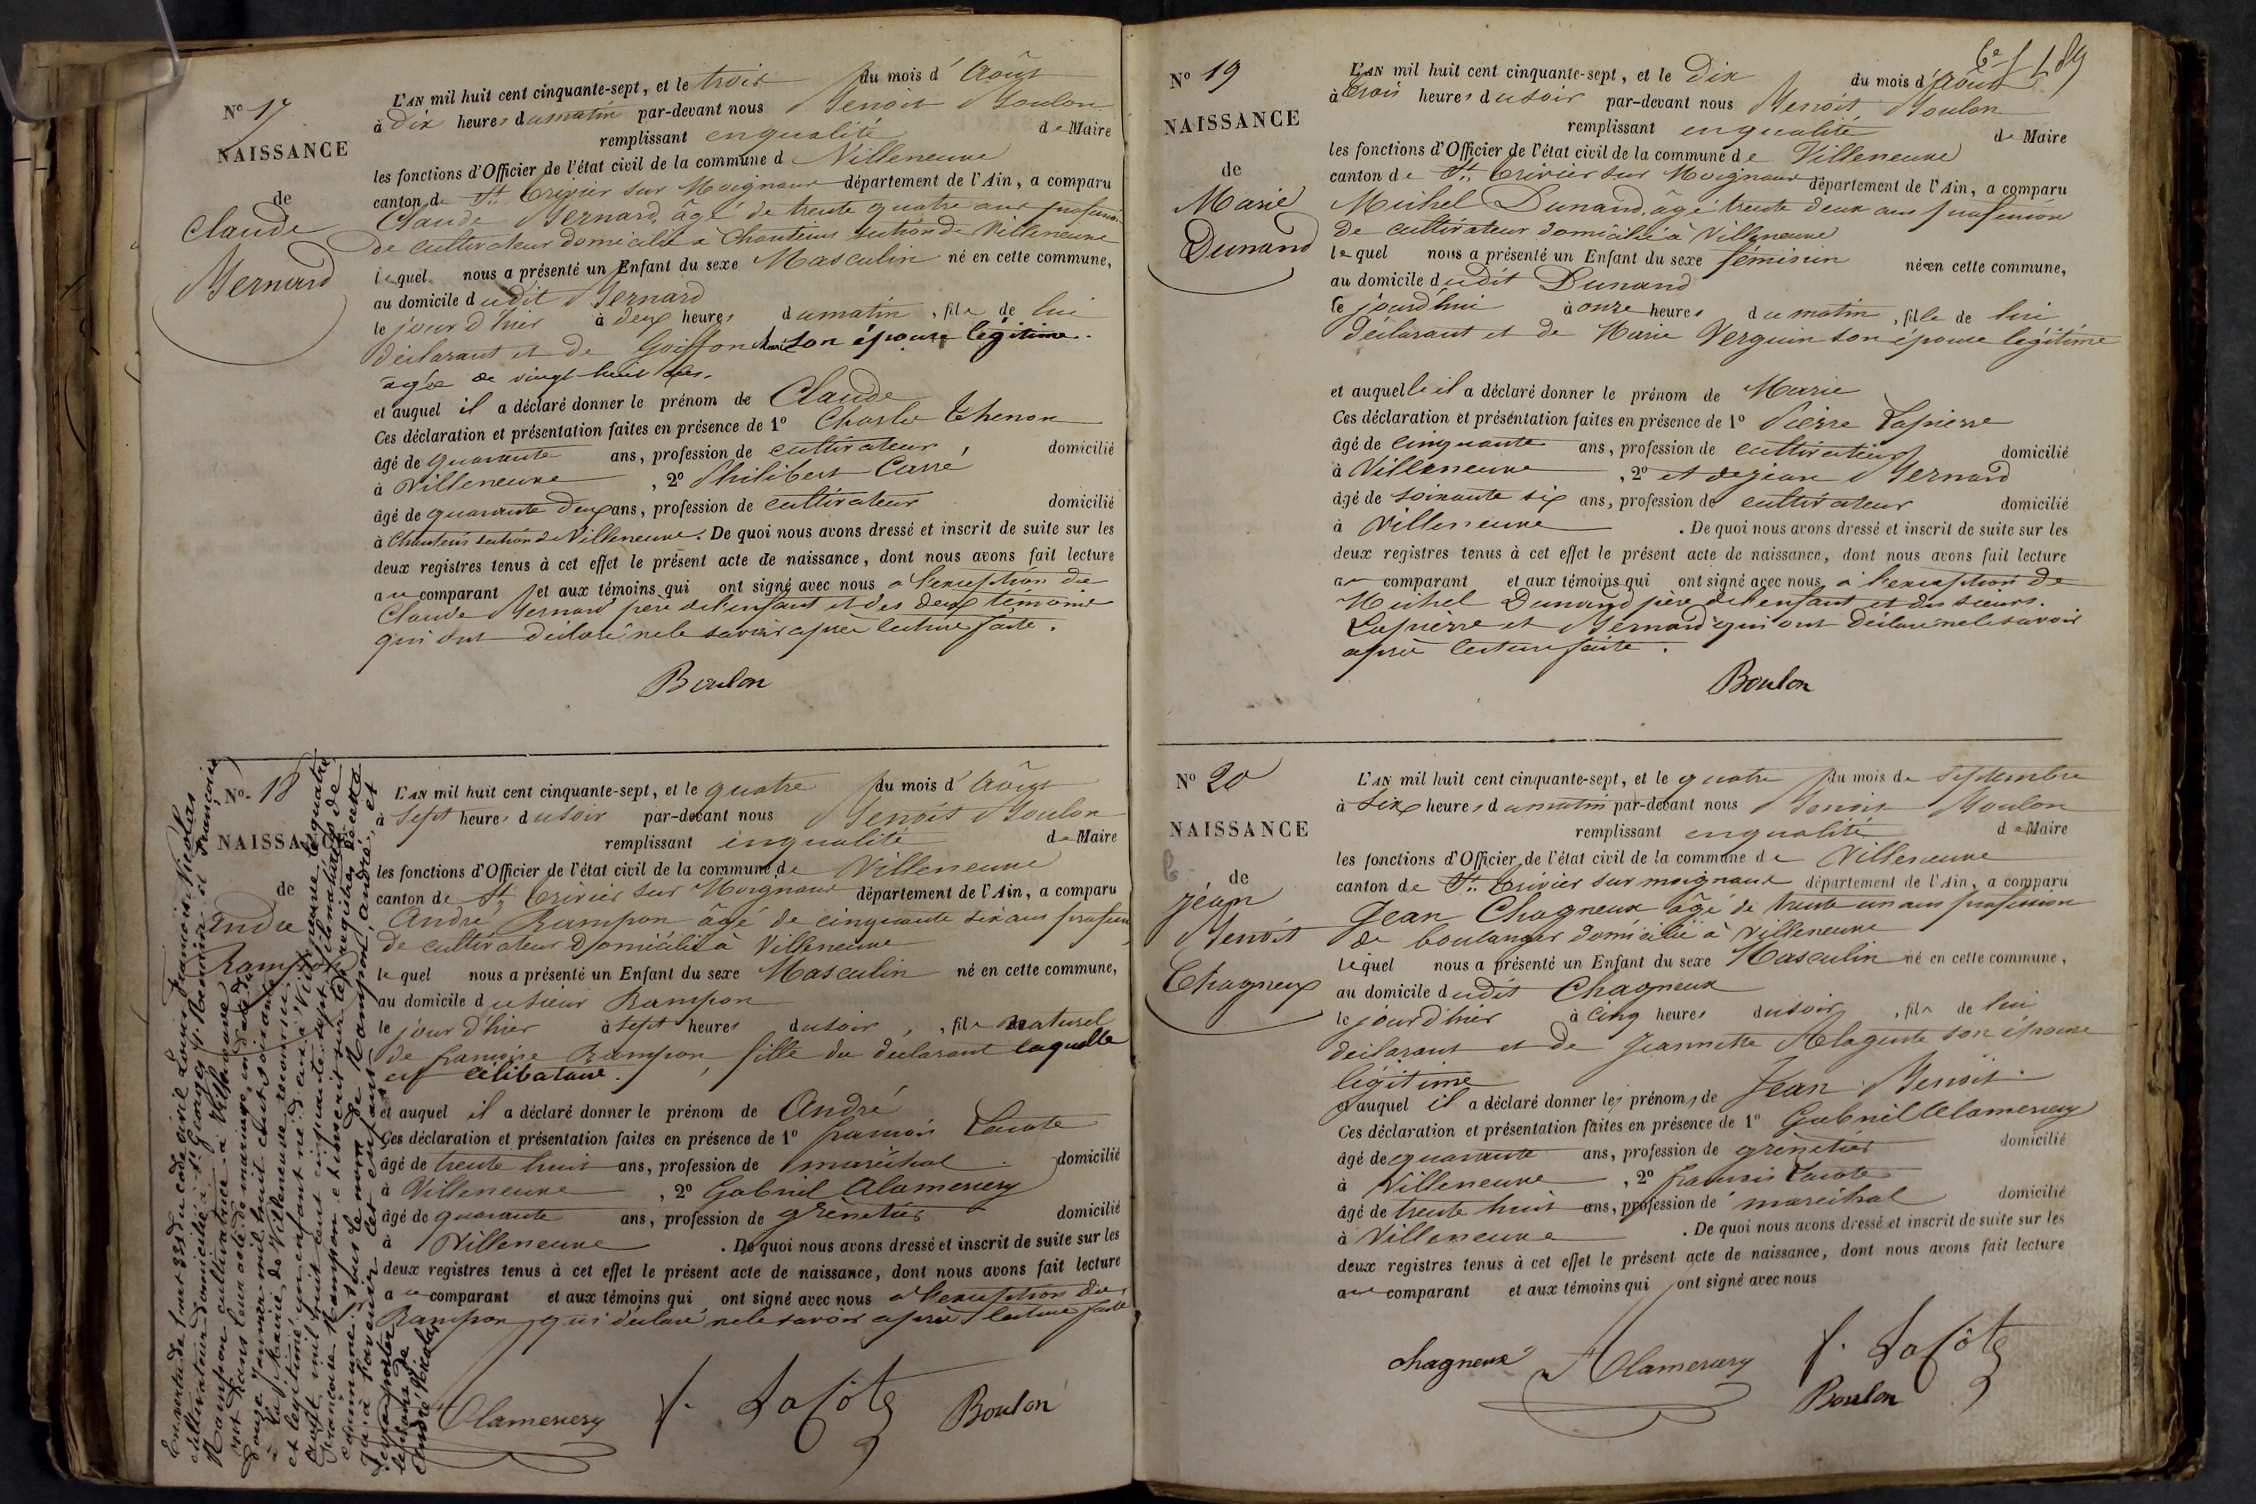 Nº 17
NAISSANCE
de
Claude
Bernard
L'AN mil huit cent cinquante-sept, et le trois du mois d'Août
à dix heures du matin par-devant nous Benoit Boulon
remplissant en qualité de Maire
les fonctions d'Officier de l'état civil de la commune d Villeneuve
canton de St. Trivier sur Moignans département de l'Ain, a comparu
Claude Bernard, âgé de trente quatre ans profession
de cultivateur domicilié à Chanteins section de Villeneuve
lequel nous a présenté un Enfant du sexe Masculin né en cette commune,
au domicile dudit Bernard
le jour d'hier à deux heures du matin, fils de lui
déclarant et de Goiffon Marie son épouse légitime.
âgée de vingt huit ans.
et auquel il a déclaré donner le prénom de Claude
Ces déclaration et présentation faites en présence de 1º Charles Thenon
âgé de quarante ans, profession de cultivateur domicilié
à Villeneuve, 2º Philibert Carré
âgé de quarante deux ans, profession de cultivateur domicilié
à Chanteins section de Villeneuve. De quoi nous avons dressé et inscrit de suite sur les
deux registres tenus à cet effet le présent acte de naissance, dont nous avons fait lecture
au comparant et aux témoins qui ont signé avec nous a l'exception de
Claude Bernard père de l'enfant et des deux témoins
qui ont déclaré ne le savoir après lecture faite.
Boulon
Nº 18
NAISSANCE
de
andré
Rampon
L'AN mil huit cent cinquante-sept, et le quatre du mois d'Août
à Sept heures du soir par-devant nous Benoit Boulon
remplissant en qualité de Maire
les fonctions d'Officier de l'état civil de la commune de Villeneuve
canton de St. Trivier sur Moignans département de l'Ain, a comparu
André Rampon âgé de cinquante six ans profession
de cultivateur domicilié à Villeneuve
lequel nous a présenté un Enfant du sexe Masculin né en cette commune,
au domicile du sieur Rampon
le jour d'hier à sept heures du soir, fils naturel
de françoise Rampon, fille du déclarant laquelle
est célibataire.
et auquel il a déclaré donner le prénom de André
Ces déclaration et présentation faites en présence de 1º françois Lacote
âgé de trente huit ans, profession de maréchal domicilié
à Villeneuve, 2º Gabriel Alamercery
âgé de quarante ans, profession de grènetier domicilié
à Villeneuve. De quoi nous avons dressé et inscrit de suite sur les
deux registres tenus à cet effet le présent acte de naissance, dont nous avons fait lecture
au comparant et aux témoins qui ont signé avec nous a l'exception du
Rampon qui déclaré ne le savoir après lecture faite
Alamercery f. Lacôte Boulon
En vertu de l'art 331 du code civil Louis François Nicolas
cultivateur domicilié à St Georges St Renains et Françoise
Rampon cultivatrice à Villeneuve,
ont dans leur acte de mariage, en date du
douze Janvier mil huit cent soixante
à la Mairie de Villeneuve reconnu
et légitimé un enfant né d'eux à Villeneuve le quatre
août mil huit cent cinquante sept, fils naturel de
Françoise Rampon et inscrit sur les registres de cette
commune, sous le nom de Rampon, andré, et
qu'à l'avenir cet enfant
devra porter
le nom de
André Nicolas
6e f 189
Nº 19
NAISSANCE
de
Marie
Dunand
L'AN mil huit cent cinquante-sept, et le Dix du mois d'Août
à trois heures du soir par-devant nous Benoit Boulon
remplissant en qualité de Maire
les fonctions d'Officier de l'état civil de la commune de Villeneuve
canton de St. Trivier sur Moignans département de l'Ain, a comparu
Michel Dunand, âgé trente deux ans profession
de cultivateur domicilié à Villeneuve
lequel nous a présenté un Enfant du sexe féminin née en cette commune,
au domicile dudit Dunand
le jourd'hui à onze heures du matin, fille de lui
déclarant et de Marie Verguin son épouse légitime
et auquelle il a déclaré donner le prénom de Marie
Ces déclaration et présentation faites en présence de 1º Pierre Lapierre
âgé de cinquante ans, profession de cultivateur domicilié
à Villeneuve, 2º et de jean Bernard
âgé de soixante six ans, profession de cultivateur domicilié
à Villeneuve. De quoi nous avons dressé et inscrit de suite sur les
deux registres tenus à cet effet le présent acte de naissance, dont nous avons fait lecture
au comparant et aux témoins qui ont signé avec nous a l'exception de
Michel Dunand père de l'enfant et des sieurs.
Lapierre et Bernard qui ont déclaré ne le savoir
après lecture faite.
Boulon
Nº 20
NAISSANCE
de
Jean
Benoit
Chagneux
L'AN mil huit cent cinquante-sept, et le quatre du mois de Septembre
à six heures du matin par-devant nous Benoit Boulon
remplissant en qualité de Maire
les fonctions d'Officier de l'état civil de la commune de Villeneuve
canton de St. Trivier sur moignans département de l'Ain, a comparu
Jean Chagneux âgé de trente un ans profession
de boulanger domicilié à Villeneuve
lequel nous a présenté un Enfant du sexe Masculin né en cette commune,
au domicile dudit Chagneux
le jour d'hier à cinq heures du soir, fils de lui
déclarant et de Jeannette Alagente son épouse
légitime
et auquel il a déclaré donner les prénoms de Jean Benoit.
Ces déclaration et présentation faites en présence de 1º Gabriel Alamercery
âgé de quarante ans, profession de grènetier domicilié
à Villeneuve, 2º françois Lacote
âgé de trente huit ans, profession de maréchal domicilié
à Villeneuve. De quoi nous avons dressé et inscrit de suite sur les
deux registres tenus à cet effet le présent acte de naissance, dont nous avons fait lecture
au comparant et aux témoins qui ont signé avec nous
chagneux Alamercery f. Lacôte
Boulon